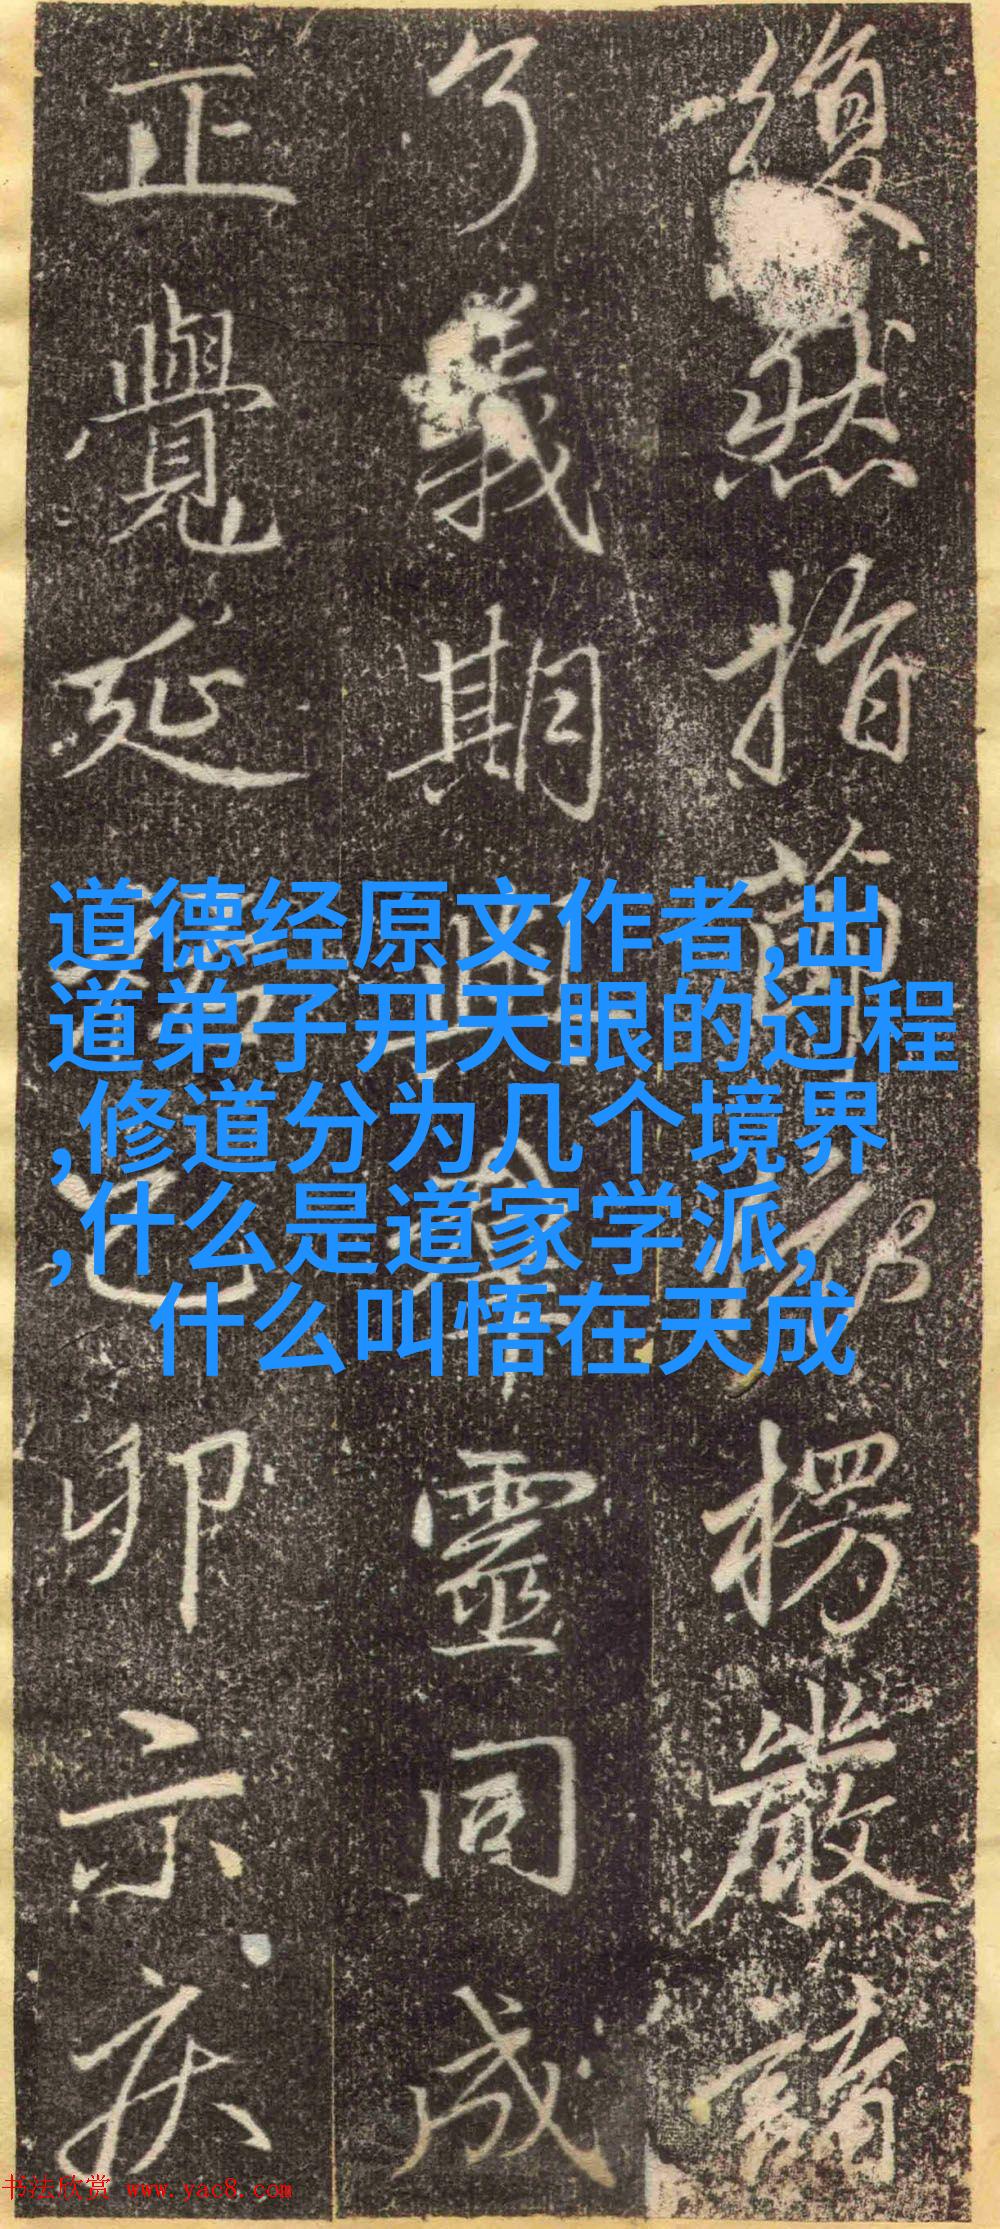 復然指楞嚴
了義期靈同成
正覺延卯示
道德经原文作者,出
道弟子开天眼的过程
,修道分为几个境界
,什么是道家学派,
什么叫悟在天成
书法欣赏 www.yac8.com